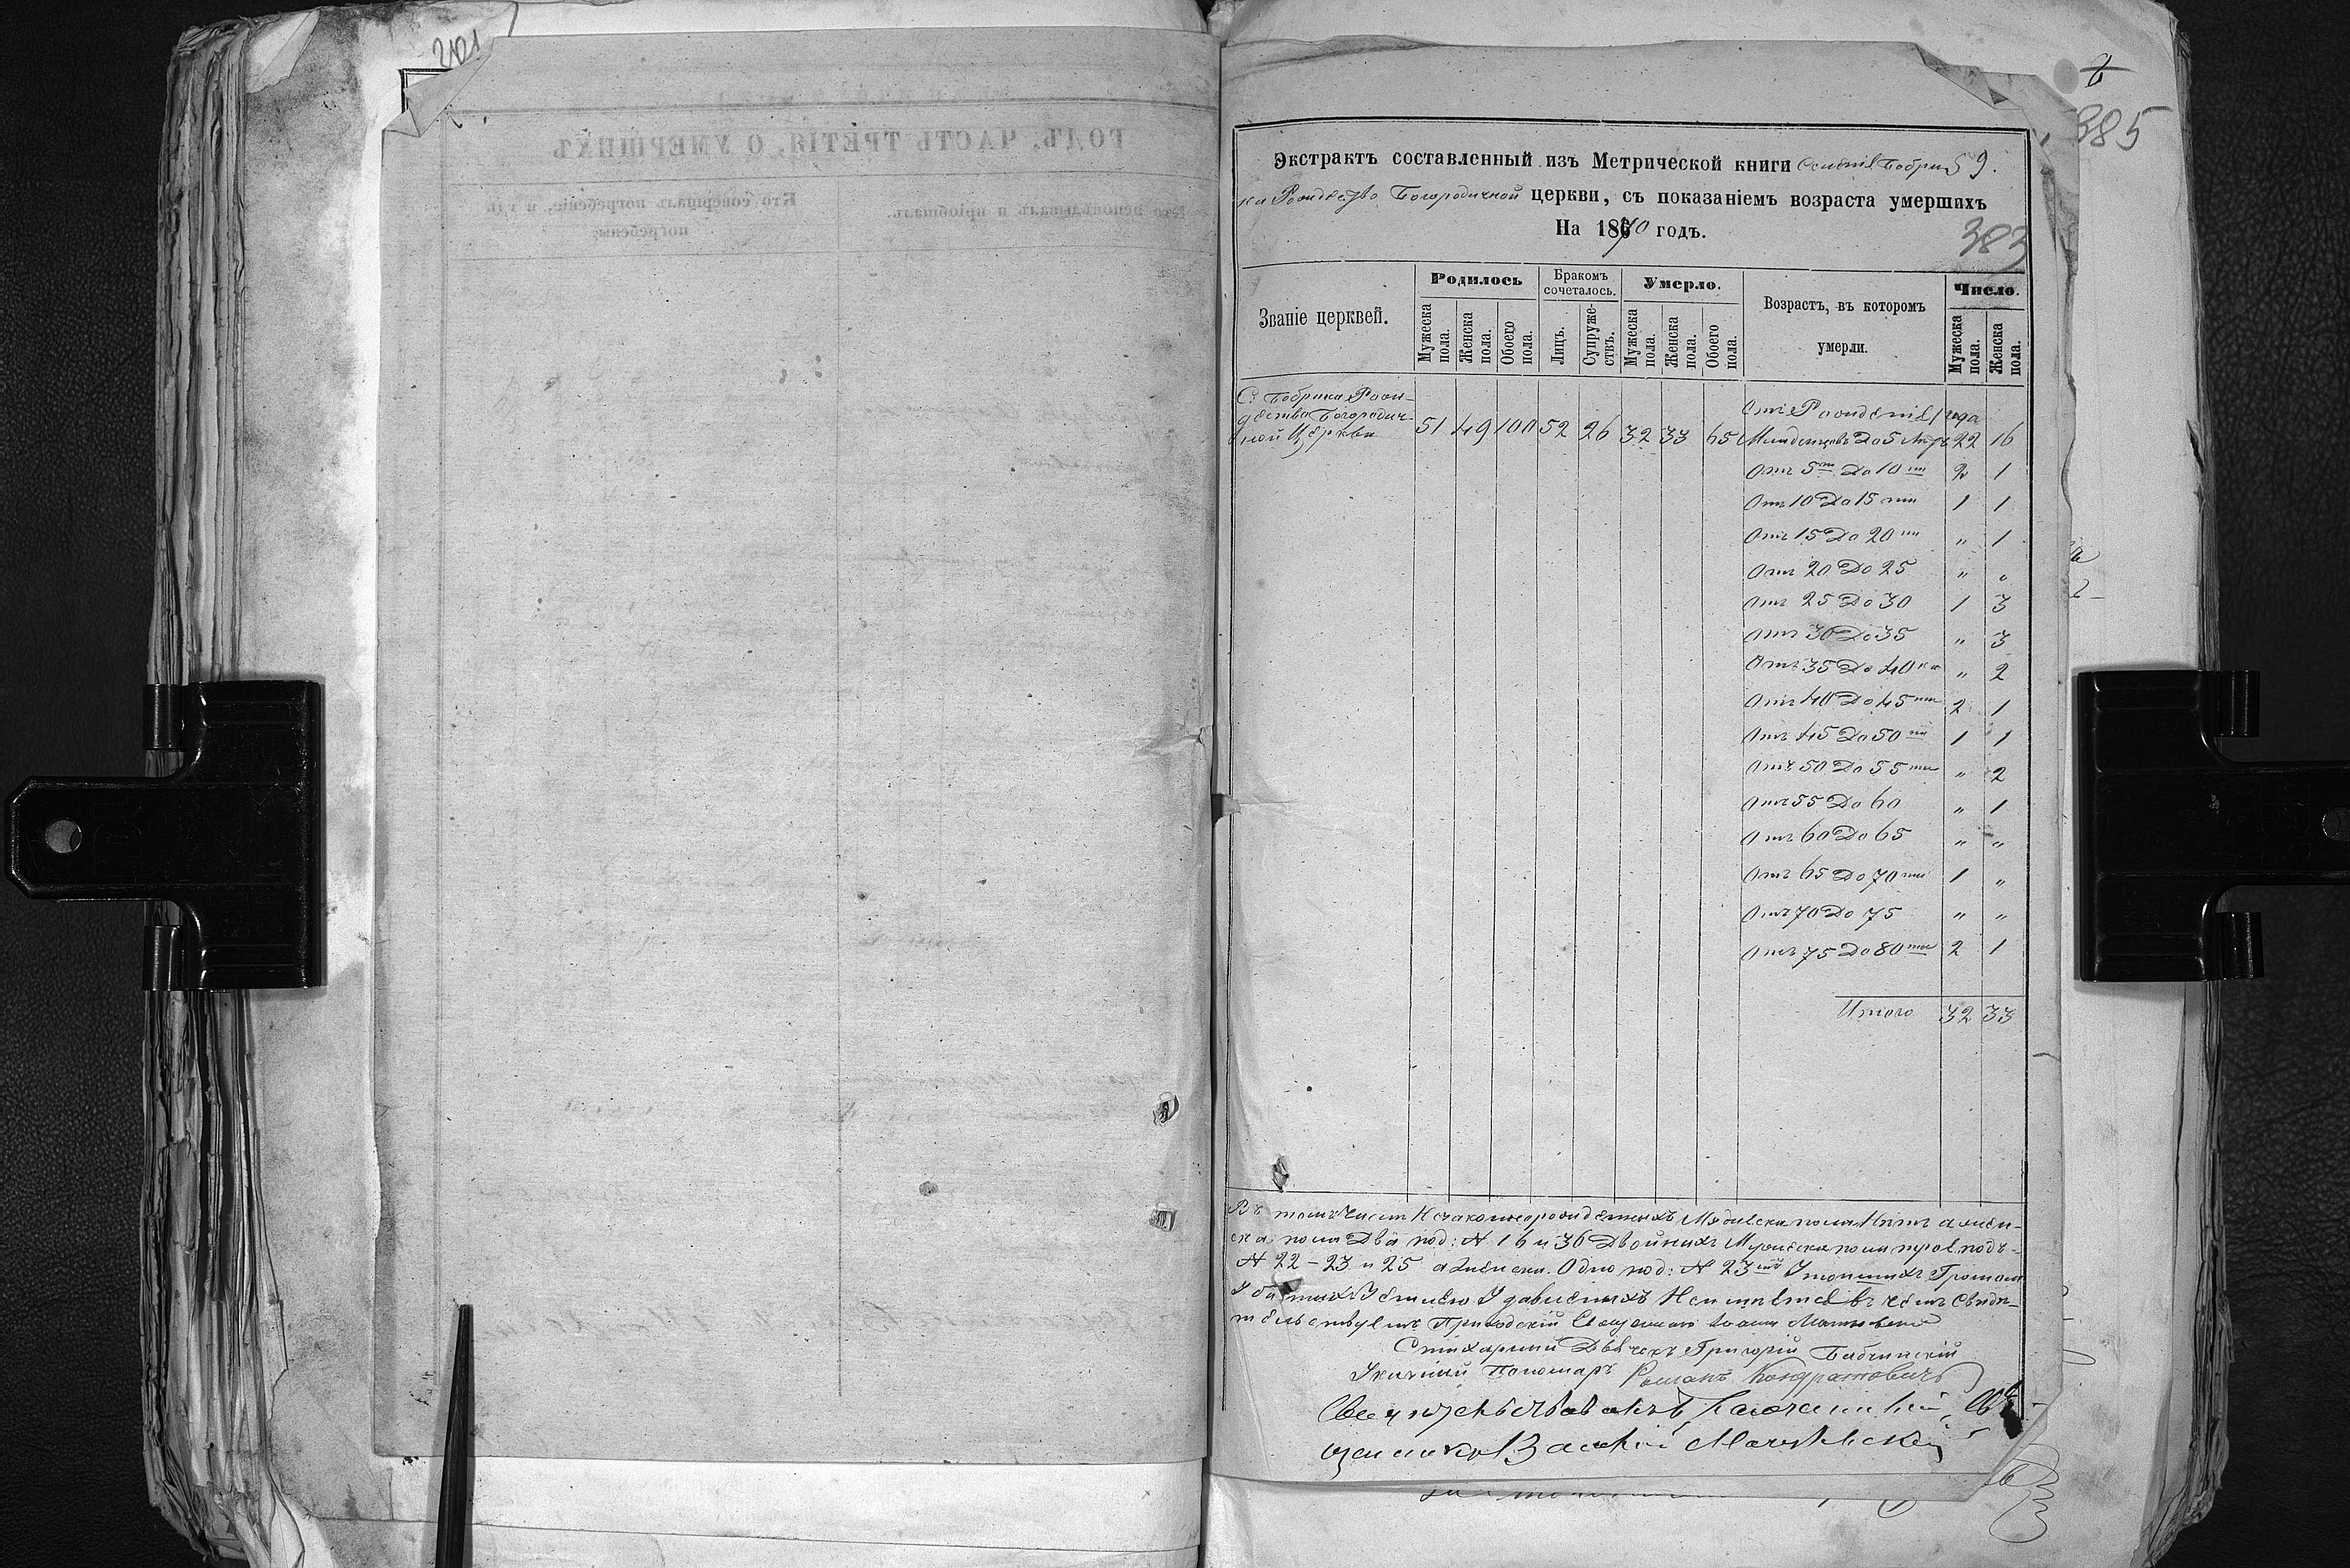 201
385
Экстрактъ составленный изъ Метрической книги Селенія Бобри 9.
ка Рождество Богородичной церкви, съ показаніемъ возраста умершихъ
На 1870 годъ.
383
Званіе церквей.
Родилось
Бракомъ сочеталось.
Умерло.
Возрастъ, въ которомъ умерли.
Число.
Мужеска пола.
Женска пола.
Обоего пола.
Лицъ.
Супруже-ствъ.
Мужеска пола.
Женска пола.
Обоего пола.
Мужеска пола.
Женска пола.
С. Бобрика Рож-
дества Богородич-
ной Церкви 51 49 100 52 26 32 33 65
Отъ Рожденія
Младенцовъ До 5 22 16
Отъ 5ти До 10ти 2 1
Отъ 10 До 15ти 1 1
Отъ 15 До 20ти „ 1
Отъ 20 До 25 „ „
Отъ 25 До 30 1 3
Отъ 30 До 35 „ 3
Отъ 35 До 40ка „ 2
Отъ 40 До 45ти 2 1
Отъ 45 До 50ти 1 1
Отъ 50 До 55ти „ 2
Отъ 55 До 60 „ 1
Отъ 60 До 65 „ „
Отъ 65 До 70ти 1 „
Отъ 70 До 75 „ „
Отъ 75 До 80ти 2 1
Итого 32 33
Въ томъ Числѣ Незаконнорожденныхъ Мужеска пола а жен-
ска пола Два под: № 16 и 36 Двойнихъ Мужеска пола трое подъ
№ 22 – 23 и 25 а Женска. Одно под: № 23 Утопшихъ Громом
Убитыхъ Удавленыхъ Неимѣется въ чемъ Свидѣ-
тельствуетъ Приходскій Священникъ Іоаннъ
Стихарный Дьячекъ Григорій Бабчинскій
Пономарь Романъ Кондратовичъ
ГОДЪ, ЧАСТЬ ТРЕТІЯ, О УМЕРШИХЪ
Кто исповѣдывалъ и пріобщалъ.
Кто совершалъ погребеніе, и гдѣ погребены?